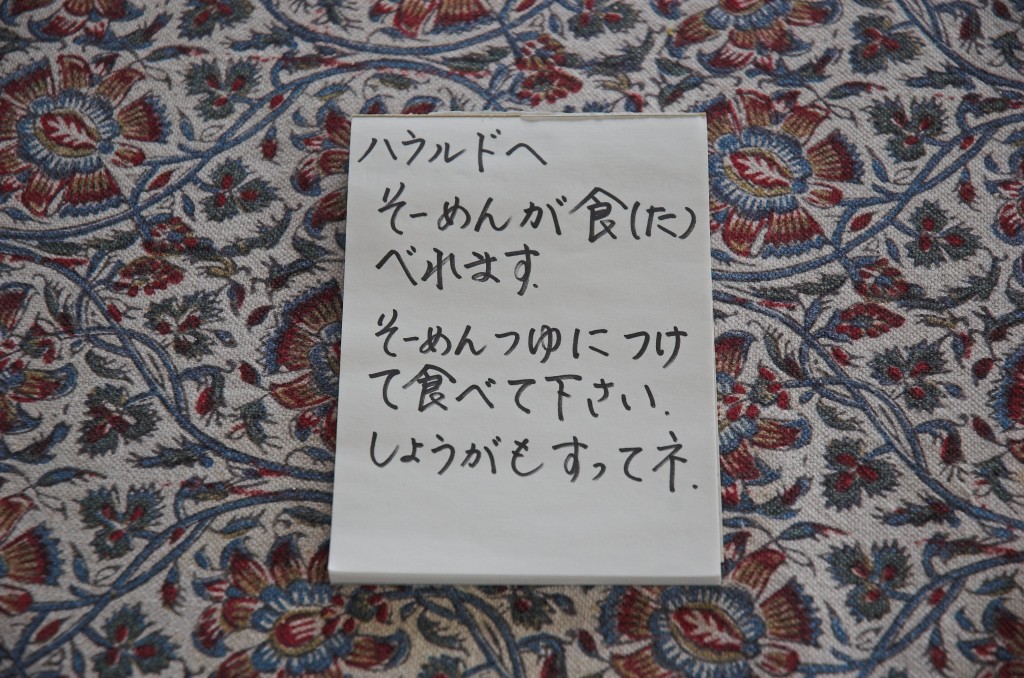 ハウルドへ
そーめんが食(た)
べれます.
そーめんつゆにつけ
て食べて下さい.
しょうがもすってネ.